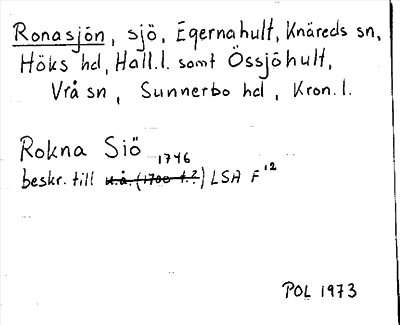 Ronasjön, sjö, Egernahult, Knäreds sn,
Höks hd, Hall.l. samt Össjöhult,
Vrå sn, Sunnerbo hd, Kron.l.
Rokna Siö 1746
beskr. till u.å. (1700 t.?) LSA F12
POL 1973